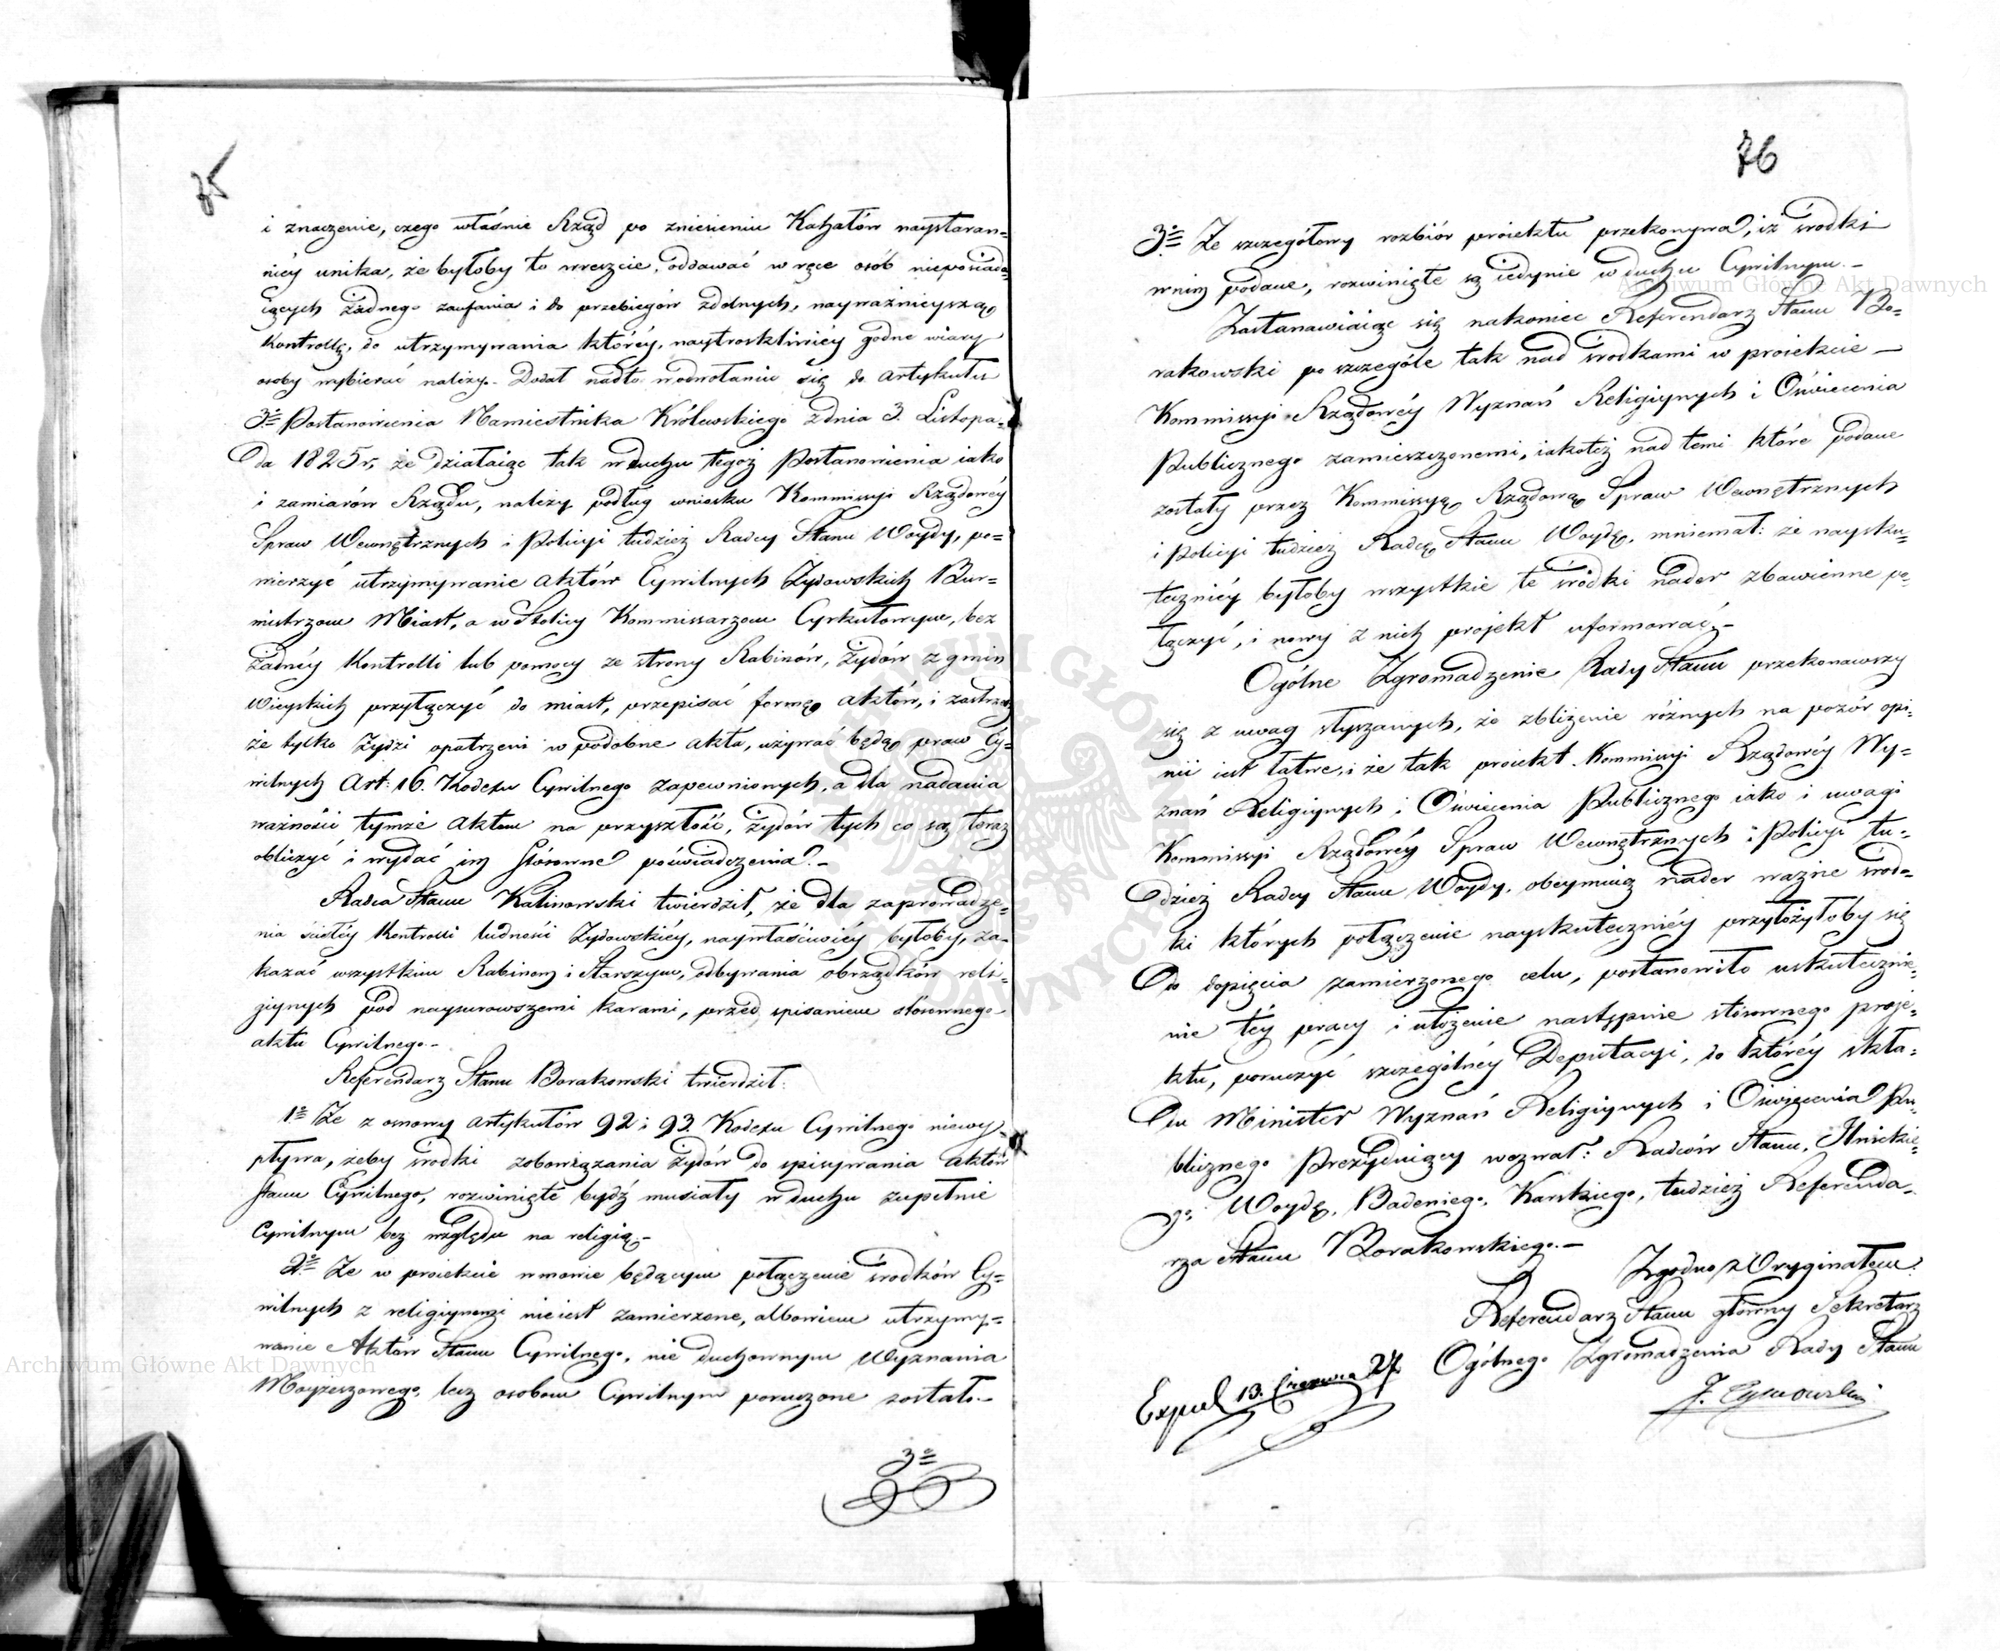 75
i znaczenie, czego właśnie Rząd po zniesieniu Kahałów naystaran=
niéy unika, że byłoby to wreszcie, oddawać w ręce osób nieposiada=
iących żadnego zaufania i do przebiegów zdolnych, nayważnieyszą
kontrollę, do utrzymywania któréy, naytroskliwiéy godne wiary
osoby wybierać należy. Dodał nadto w odwołaniu się do artykułu
3º Postanowienia Namiestnika Królewskiego z dnia 3. Listopa=
da 1825 r, że działaiąc tak w duchu tegoż Postanowienia iako
i zamiarów Rządu, należy podług wniosku Kommissyi Rządowéy
Spraw Wewnętrznych i Policyi tudzież Radcy Stanu Woydy, po=
wierzyć utrzymywanie aktów Cywilnych Żydowskich Bur=
mistrzom Miast, a w Stolicy Kommissarzom Cyrkułowym, bez
żadnéy kontrolli lub pomocy ze strony Rabinów, żydów z gmin
Wieyskich przyłączyć do miast, przepisać formę aktów, i zastrzedz
że tylko żydzi opatrzeni w podobne akta, używać będą praw Cy=
wilnych Art: 16. Kodexu Cywilnego zapewnionych, a dla nadania
ważności tymże aktom na przyszłość, żydów tych co są teraz
obliczyć i wydać im stósowne poświadczenia.-
Radca Stanu Kalinowski twierdził, że dla zaprowadze=
nia ścisłéy kontrolli ludności Żydowskiéy, naywłaściwiéy byłoby, za=
kazać wszystkim Rabinom i Starszym, odbywania obrządków reli=
giynych pod naysurowszemi karami, przed spisaniem stósownego
aktu Cywilnego.-
Referendarz Stanu Borakowski twierdził:
1º Że z osnowy artykułów 92 i 93 Kodexu Cywilnego niewy=
pływa, żeby środki zobowiązania żydów do spisywania aktów
stanu Cywilnego, rozwinięte bydź musiały w duchu zupełnie
Cywilnym bez względu na religią.-
2º Że w proiekcie w mowie będącym połączenie środków Cy=
wilnych z religiynemi nie iest zamierzone, albowiem utrzymy=
wanie Aktów Stanu Cywilnego, nie duchownym Wyznania
Moyżeszowego, lecz osobom Cywilnym poruczone zostało.-
3º
76
3º Że szczegółowy rozbiór proiektu przekonywa, iż środki
w nim podane, rozwinięte są iedynie w duchu Cywilnym.-
Zastanawiaiąc się nakoniec Referendarz Stanu Bo=
rakowski po szczególe tak nad środkami w proiekcie
Kommissyi Rządowéy Wyznań Religiynych i Oświecenia
Publicznego zamieszczonemi, iakotéż nad temi które podane
zostały przez Kommissyą Rządową Spraw Wewnętrznych
i Policyi tudzież Radcę Stanu Woydę, mniemał: że naysku=
teczniéy byłoby wszystkie te środki nader zbawienne po=
łączyć, i nowy z nich projekt uformować.-
Ogólne Zgromadzenie Rady Stanu przekonawszy
się z uwag słyszanych, że zbliżenie różnych na pozór opi=
nii iest łatwe, i że tak proiekt Kommissyi Rządowéy Wy=
znań Religiynych i Oświecenia Publicznego iako i uwagi
Kommissyi Rządowéy Spraw Wewnętrznych i Policyi tu=
dzież Radcy Stanu Woydy, obeymuią nader ważne środ=
ki których połączenie nayskuteczniéy przyłożyłoby się
do dopięcia zamierzonego celu, postanowiło uskutecznie=
nie téy pracy i ułożenie następnie stósownego proje=
ktu, poruczyć szczególnéy Deputacyi, do któréy skła=
du Minister Wyznań Religiynych i Oświecenia Pu=
blicznego Prezyduiący wezwał: Radców Stanu, Hnickie=
go, Woydę, Badeniego, Karskiego, tudzież Referenda=
rza Stanu Borakowskiego.-
Zgodno z Oryginałem:
Referendarz Stanu główny Sekretarz
Ogólnego Zgromadzenia Rady Stanu
Exped 13. Czerwca 27.
Archiwum Główne Akt Dawnych
Archiwum Główne Akt Dawnych
ARCHIWUM GŁÓWNE AKT DAWNYCH